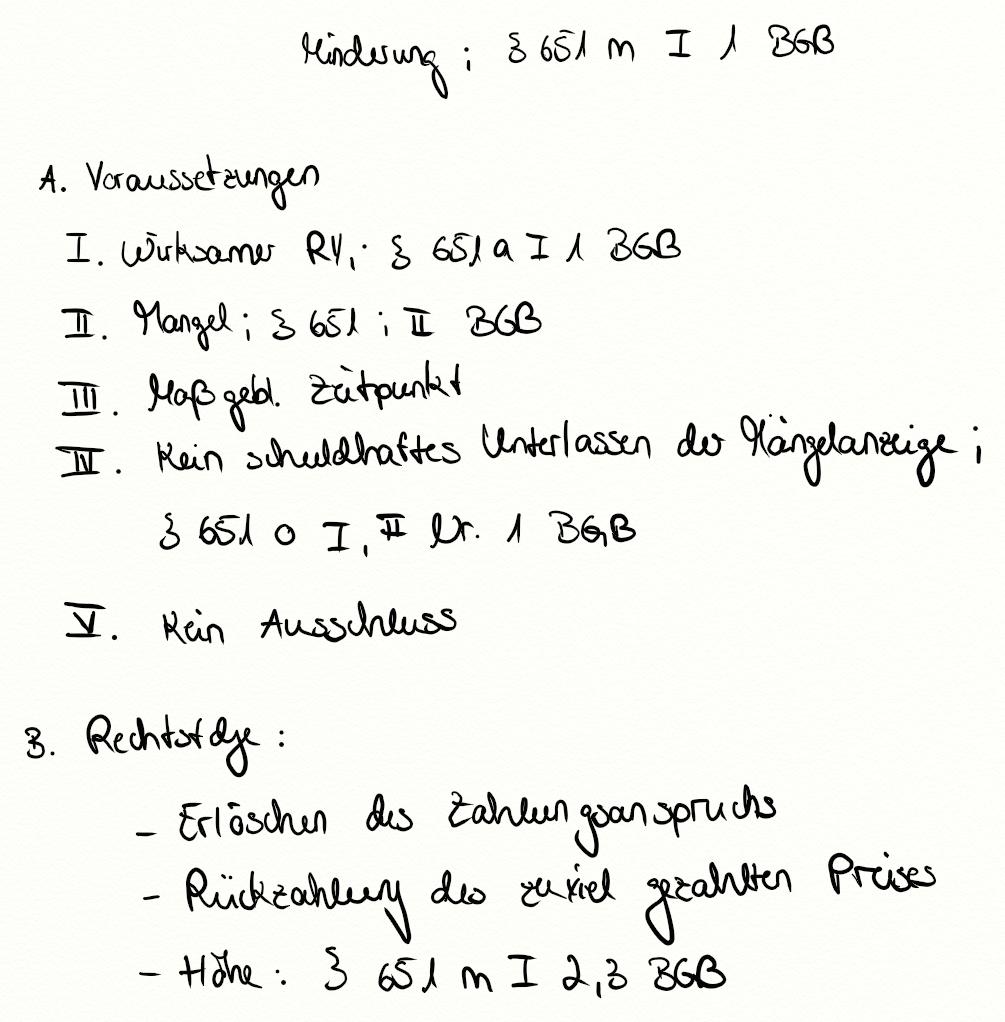 Minderung; § 651 m I 1 BGB
A. Voraussetzungen
I. Wirksamer RV; § 651 a I 1 BGB
II. Mangel; § 651 i II BGB
III. Maßgebl. Zeitpunkt
IV. Kein schuldhaftes Unterlassen der Mängelanzeige;
§ 651 o I, II Nr. 1 BGB
V. Kein Ausschluss
B. Rechtsfolge:
- Erlöschen des Zahlungsanspruchs
- Rückzahlung des zuviel gezahlten Preises
- Höhe: § 651 m I 2,3 BGB